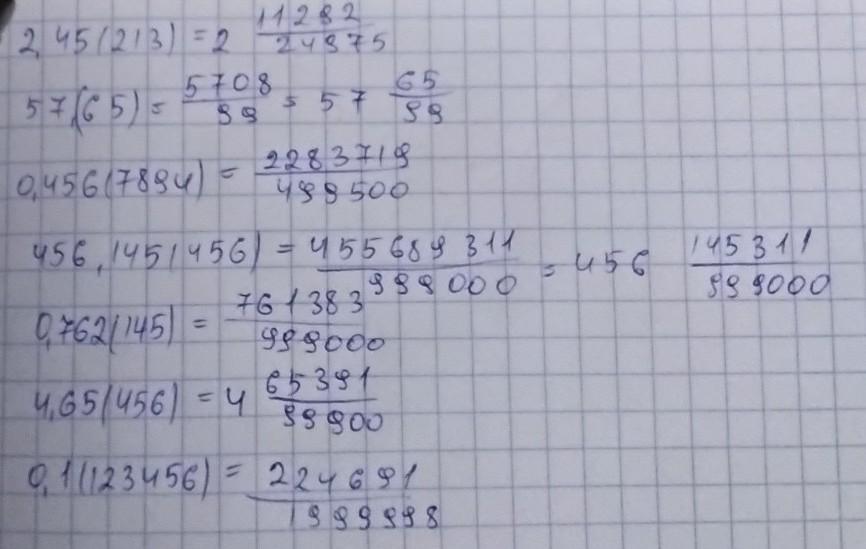 2,45(213) = 2 11282/24975
57,(65) = 5708/99 = 57 65/99
0,456(7894) = 2283719/499500
456,145(456) = 455689311/999000 = 456 145311/999000
0,762(145) = 761383/999000
4,65(456) = 4 65391/99900
0,1(123456) = 224691/1999998